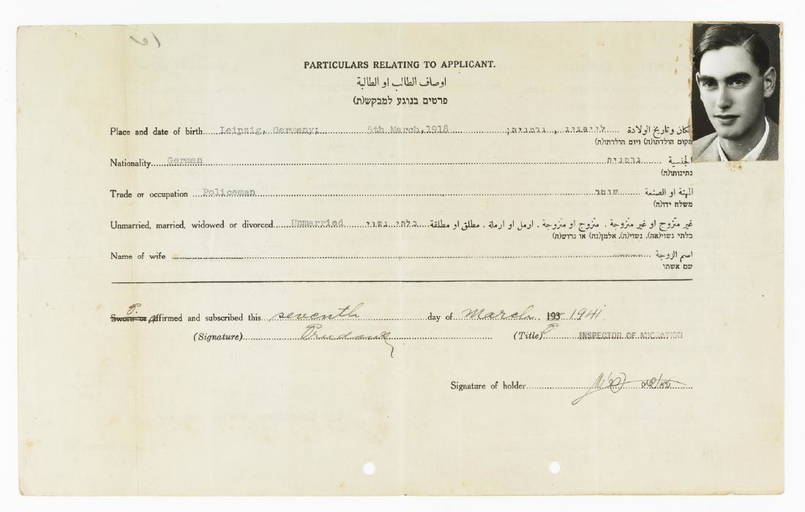 PARTICULARS RELATING TO APPLICANT.
اوصاف الطالب او الطالبة
פרטים בנוגע למבקש(ת)
Place and date of birth Leipzig, Germany; 5th March, 1918 לייפציג, גרמניה; مكان وتاريخ الولادة
מקום הולדתו(ה) ויום הולדתו(ה)
Nationality German גרמנית الجنسية
נתינותו(ה)
Trade or occupation Policeman שוטר المهنة او الصنعة
משלח ידו(ה)
Unmarried, married, widowed or divorced Unmarried בלתי נשוי غير متزوج او غير متزوجة ، متزوج او متزوجة ، ارمل او ارملة ، مطلق او مطلقة
בלתי נשוי(אה), נשוי(ה), אלמן(נה) או גרוש(ה)
Name of wife اسم الزوجة
שם אשתו
Sworn or Affirmed and subscribed this seventh day of March 193 1941
(Signature) (Title) INSPECTOR OF MIGRATION
Signature of holder